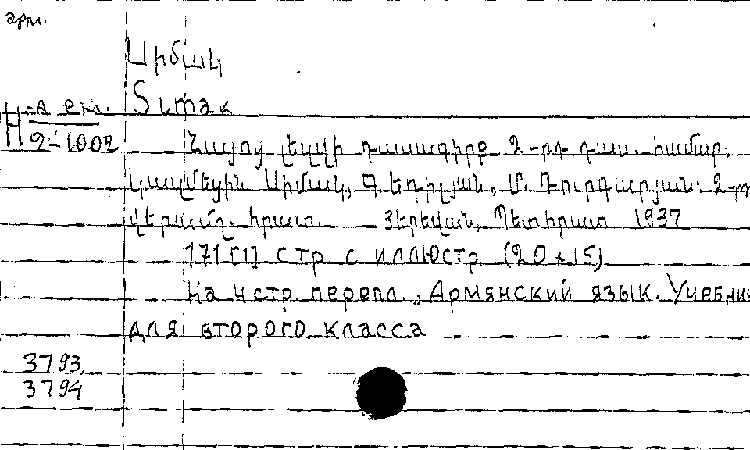 Սիմակ
Simak
Н-а ем.
2-1002
Հայոց լեզվի դասագիրք 2-րդ դաս. համար.
Կազմեցին Սիմակ, Գ. Եդիլյան, Մ. Դուրգարյան. 2-րդ
վերամշ. հրատ. Յերեվան, Պետհրատ 1937
171 [1] стр с иллюстр (20×15)
На 4 стр. перепл. „Армянский язык. Учебник
для второго класса
3793
3794